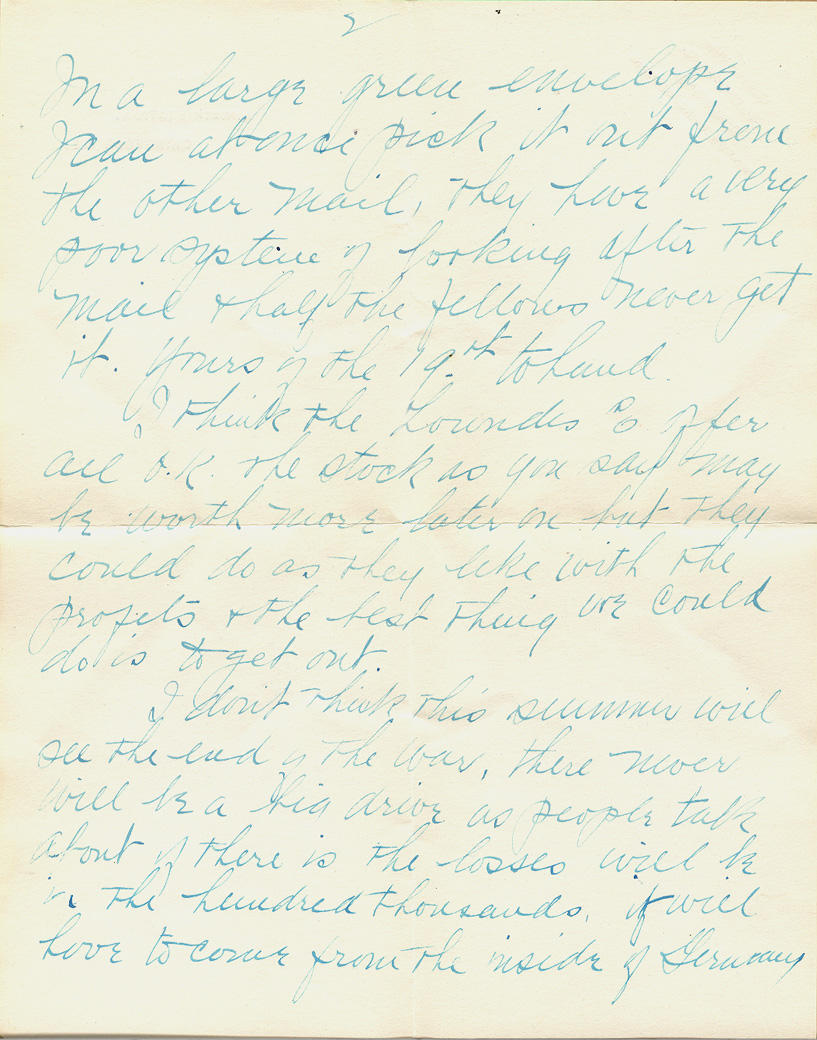 2
In a large green envelope
I can at once pick it out from
the other mail, they have a very
poor system of looking after the
mail & half the fellows never get
it. Yours of the 19th to hand.
I think the Lowndes Co offer
all O.K. the stock as you say may
be worth more later on but they
could do as they like with the
profits & the best thing we could
do is to get out.
I don't think this summer will
see the end of the war, there never
will be a big drive as people talk
about if there is the losses will be
in the hundred thousands, it will
have to come from the inside of Germany